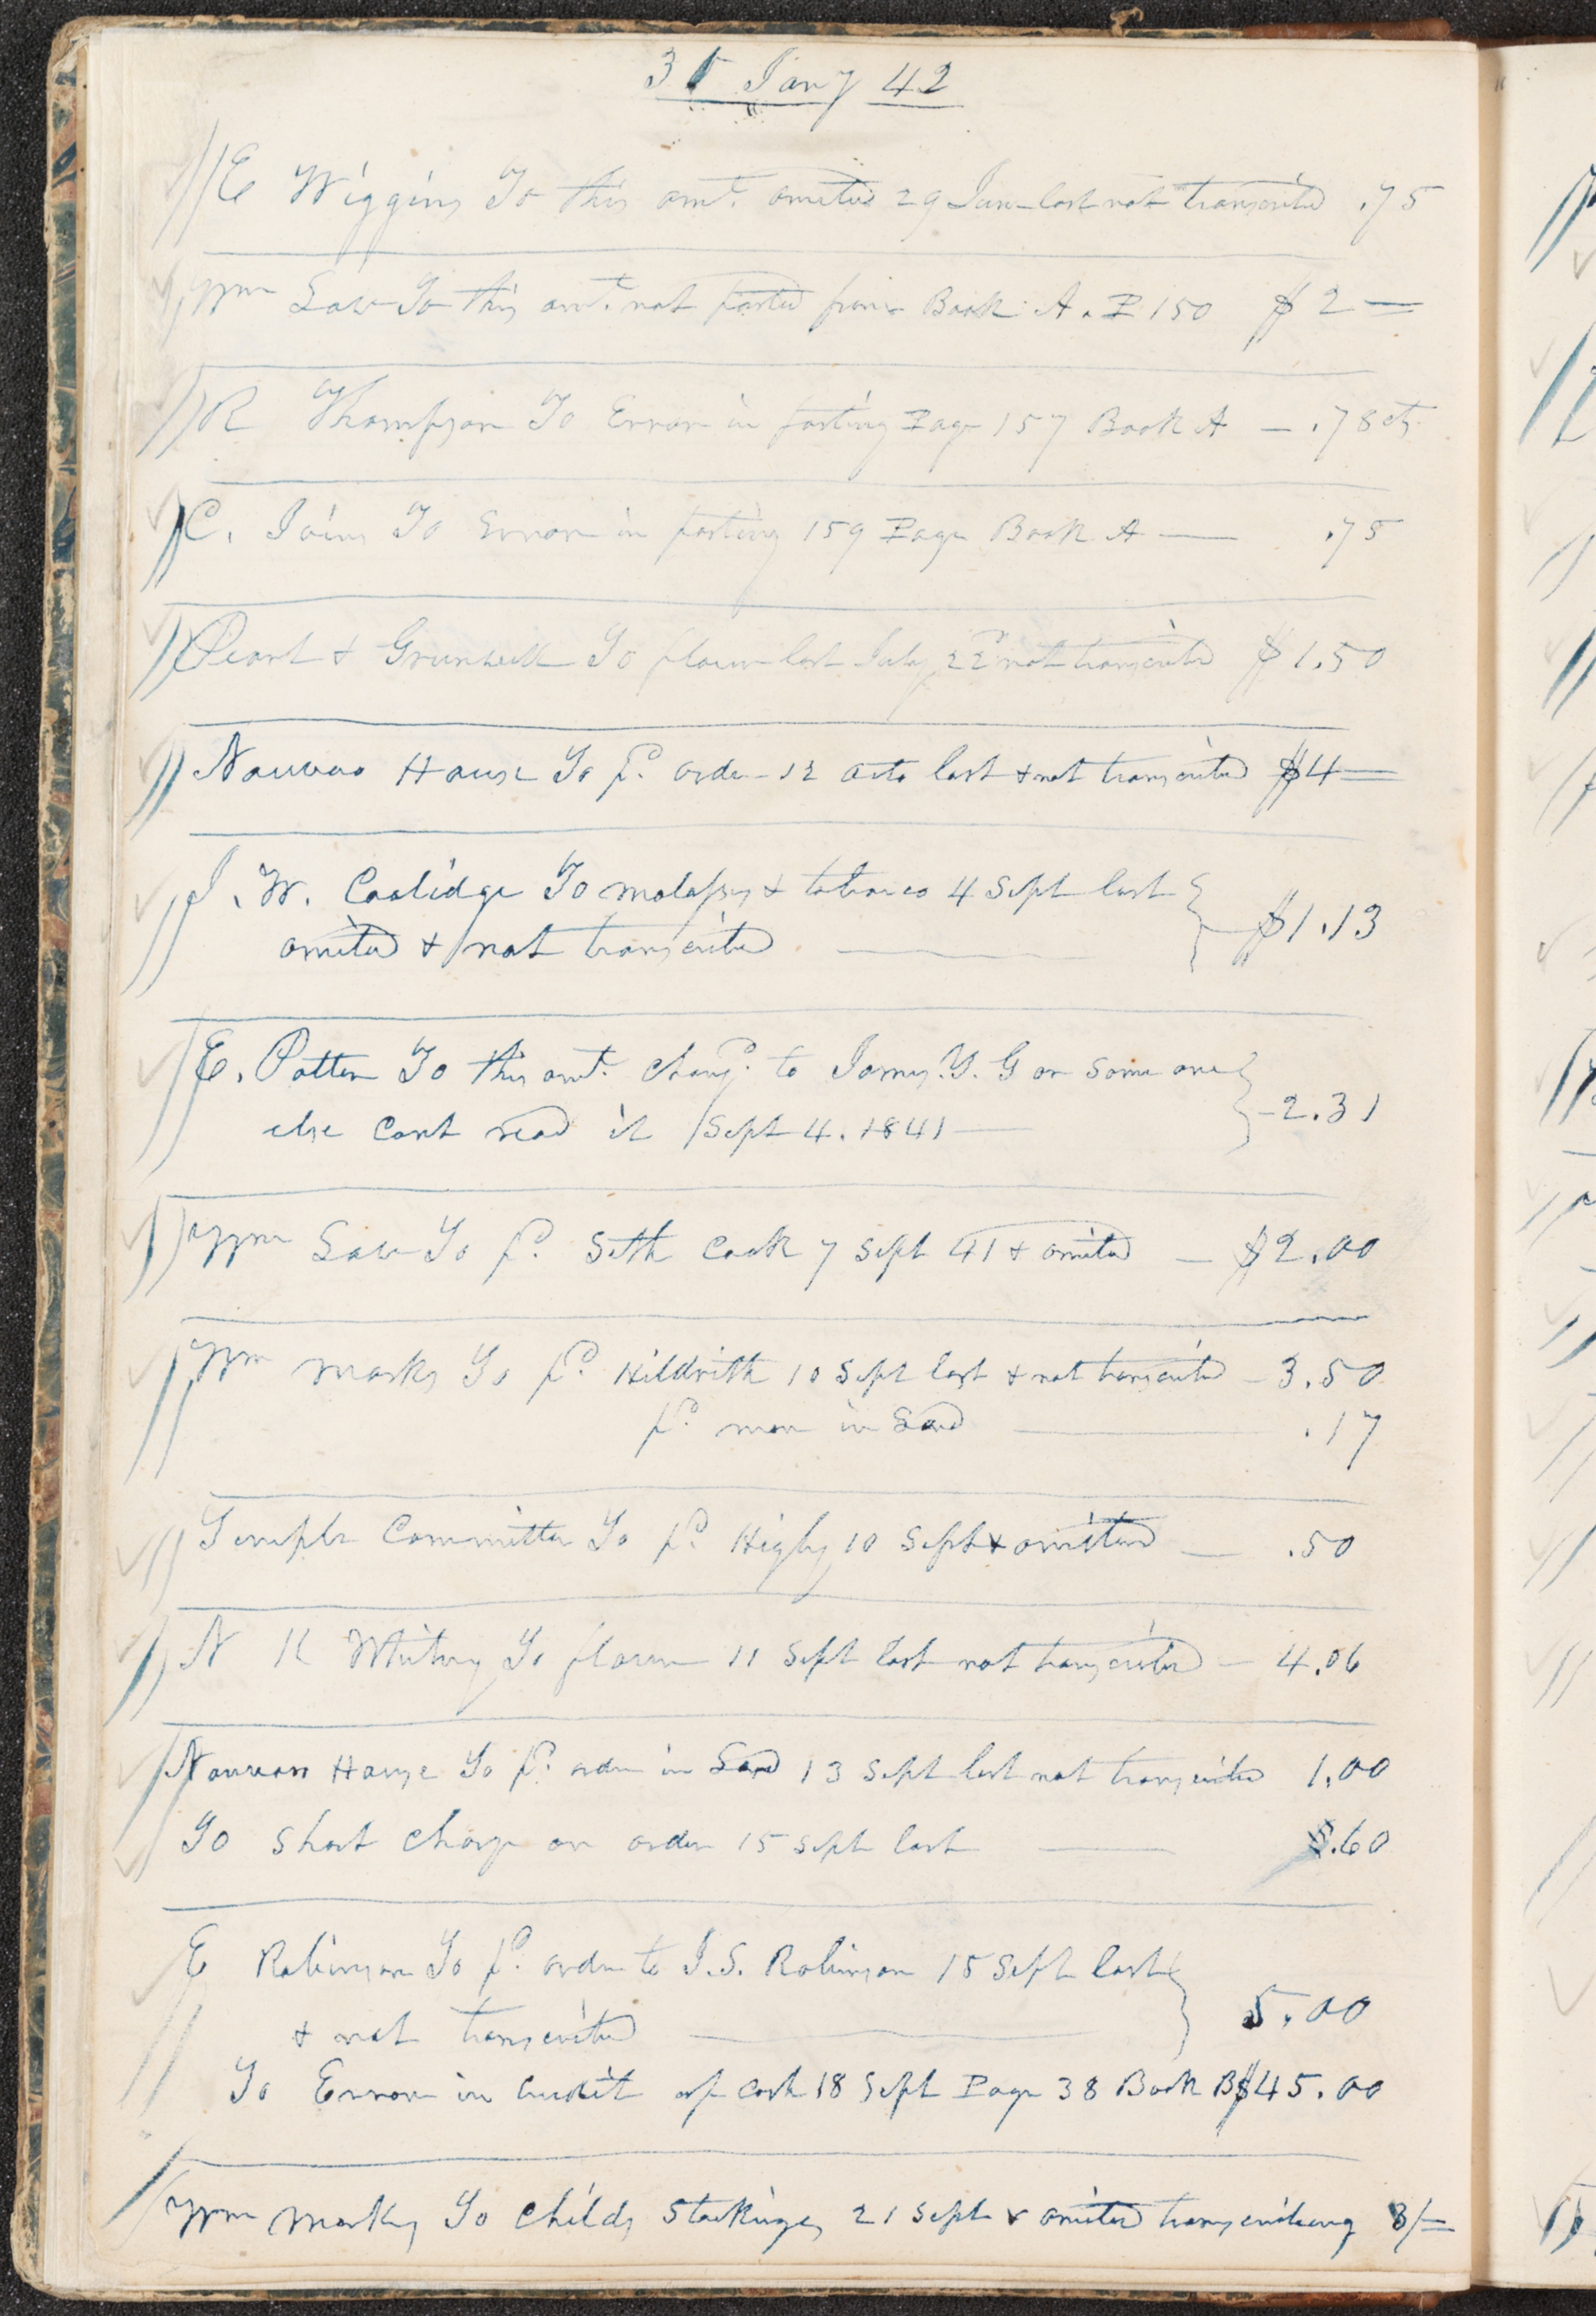 31 Jany 42
E Wiggins To this amt. omited 29 Jan last not transcribed .75
Wm Law To this amt. not posted from Book A. P 150 $2=
R Thompson To Error in posting Page 157 Book A — .78 cts
C. Ivins To Error in posting 159 Page Book A — .75
& To flour last July 22d not transcribed $1.50
Nauvoo House To pd. order 12 Octo last & not transcribed $4=
J. W. Coolidge To molasses & tobacco 4 Sept last
omited & not transcribed — $1.13
E. Potter To this amt. chargd. to James. Y. G or some one
else cant read it Sept 4. 1841 — 2.31
Wm Law To pd. Seth Cook 7 Sept 41 & omited — $2.00
Wm Marks To pd. Hildrith 10 Sept last & not transcribed — 3.50
pd. man in Sand — .17
Temple Committee To pd. Higby 10 Sept & omitted — .50
N K Whitney To flour 11 Sept last not transcribed — 4.06
Nauvoo House To pd. order in Sand 13 Sept last not transcribed 1.00
To short charge on order 15 Sept last — $.60
E Robinson To pd. order to J.S. Robinson 15 Sept last
& not transcribed — 5.00
To Error in Credit of Cash 18 Sept Page 38 Book B $45.00
Wm Marks To Childs Stockings 21 Sept & omited transcribing 3/=